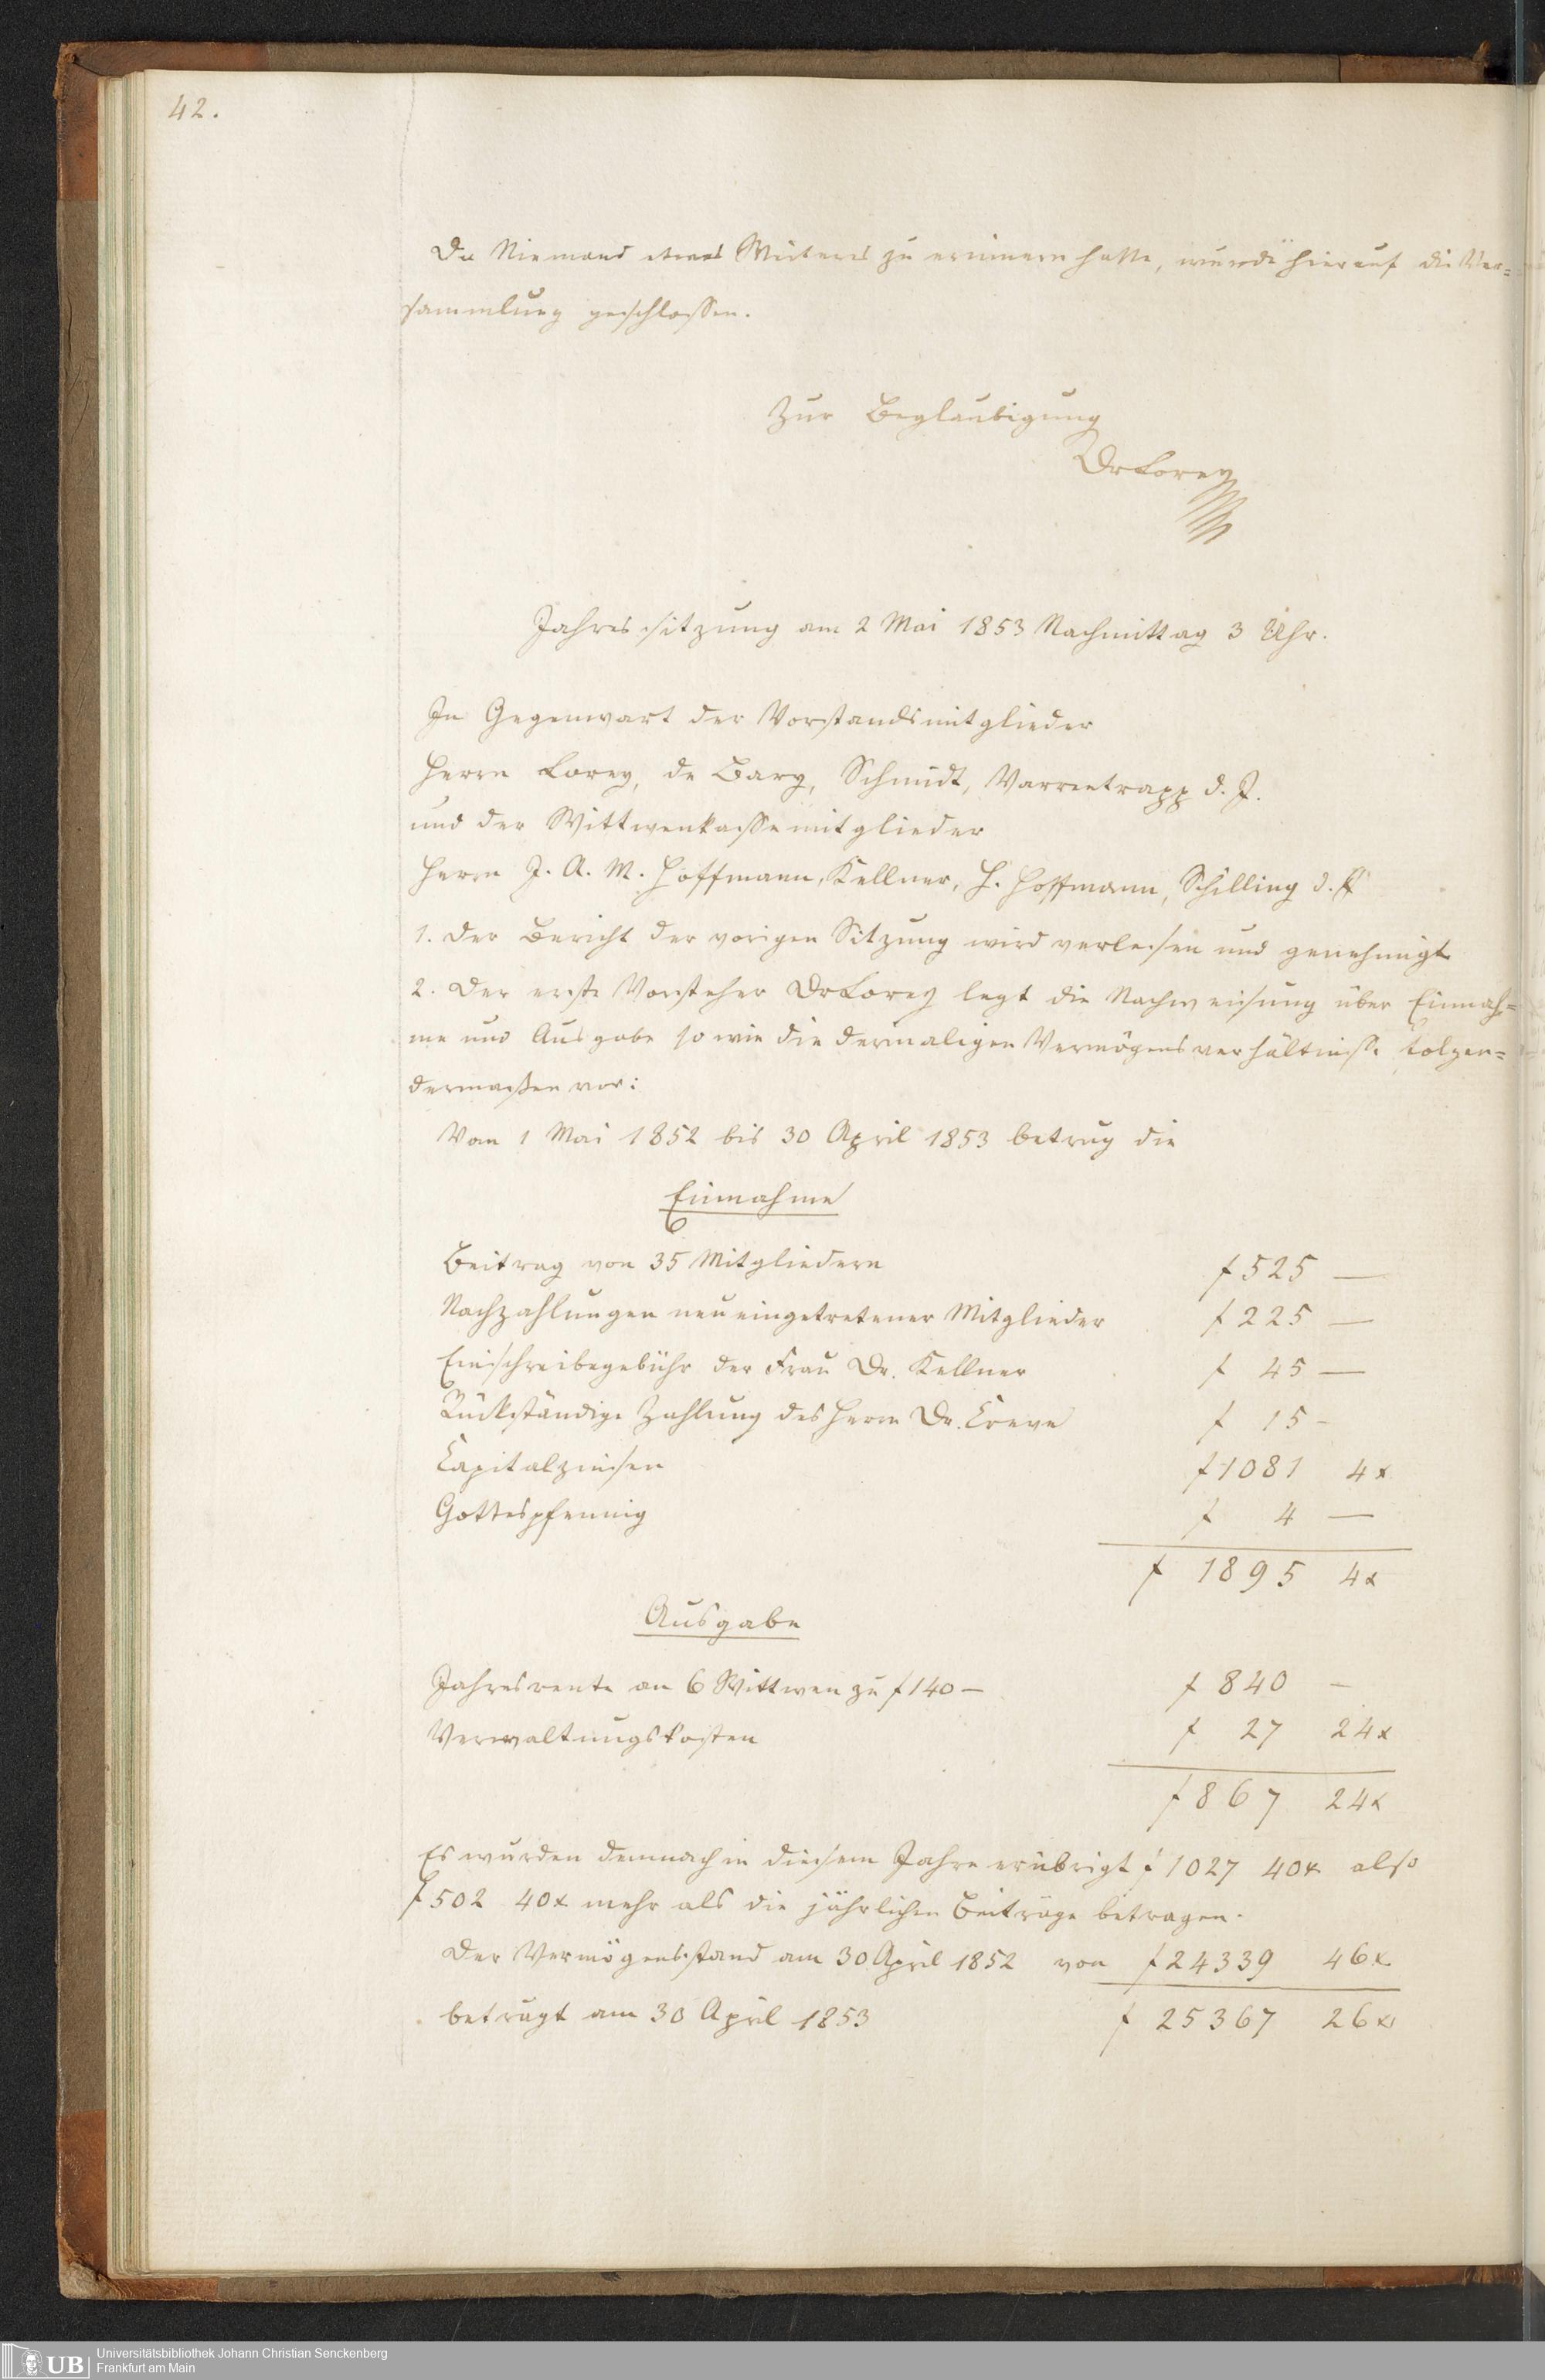 42.
Da Niemand etwas Weiteres zu erinnern hatte, wurde hierauf die Ver=
sammlung geschlossen.
Zur Beglaubigung
Dr Lorey
Jahressitzung am 2 Mai 1853 Nachmittag 3 Uhr.
In Gegenwart der Vorstandsmitglieder
Herrn Lorey, de Bary, Schmidt, Varrentrapp d. J.
und der Wittwenkassemitglieder
Herrn J. A. M. Hoffmann, Kellner, H. Hoffmann, Schilling d.
1. Der Bericht der vorigen Sitzung wird verlesen und genehmigt
2. Der erste Vorsteher Dr Lorey legt die Nachweisung über Einnah=
me und Ausgabe so wie die dermaligen Vermögensverhältnisse folgen=
dermassen vor:
Vom 1 Mai 1852 bis 30 April 1853 betrug die
Einnahme
Beitrag von 35 Mitgliedern f 525 —
Nachzahlungen neu eingetretener Mitglieder f 225 —
Einschreibegebühr der Frau Dr. Kellner f 45 —
Rückständige Zahlung des Herrn Dr. Creve f 15 -
Capitalzinsen f 1081 4x
Gottespfennig f 4 —
f 1895 4x
Ausgabe
Jahresrente an 6 Wittwen zu f 140 — f 840 -
Verwaltungskosten f 27 24x
f 867 24x
Es wurden demnach in diesem Jahre erübrigt f 1027 40x also
f 502 40x mehr als die jährlichen Beiträge betragen.
Der Vermögensstand am 30 April 1852 von f 24339 46x
beträgt am 30 April 1853 f 25367 26x
UB
Universitätsbibliothek Johann Christian Senckenberg
Frankfurt am Main